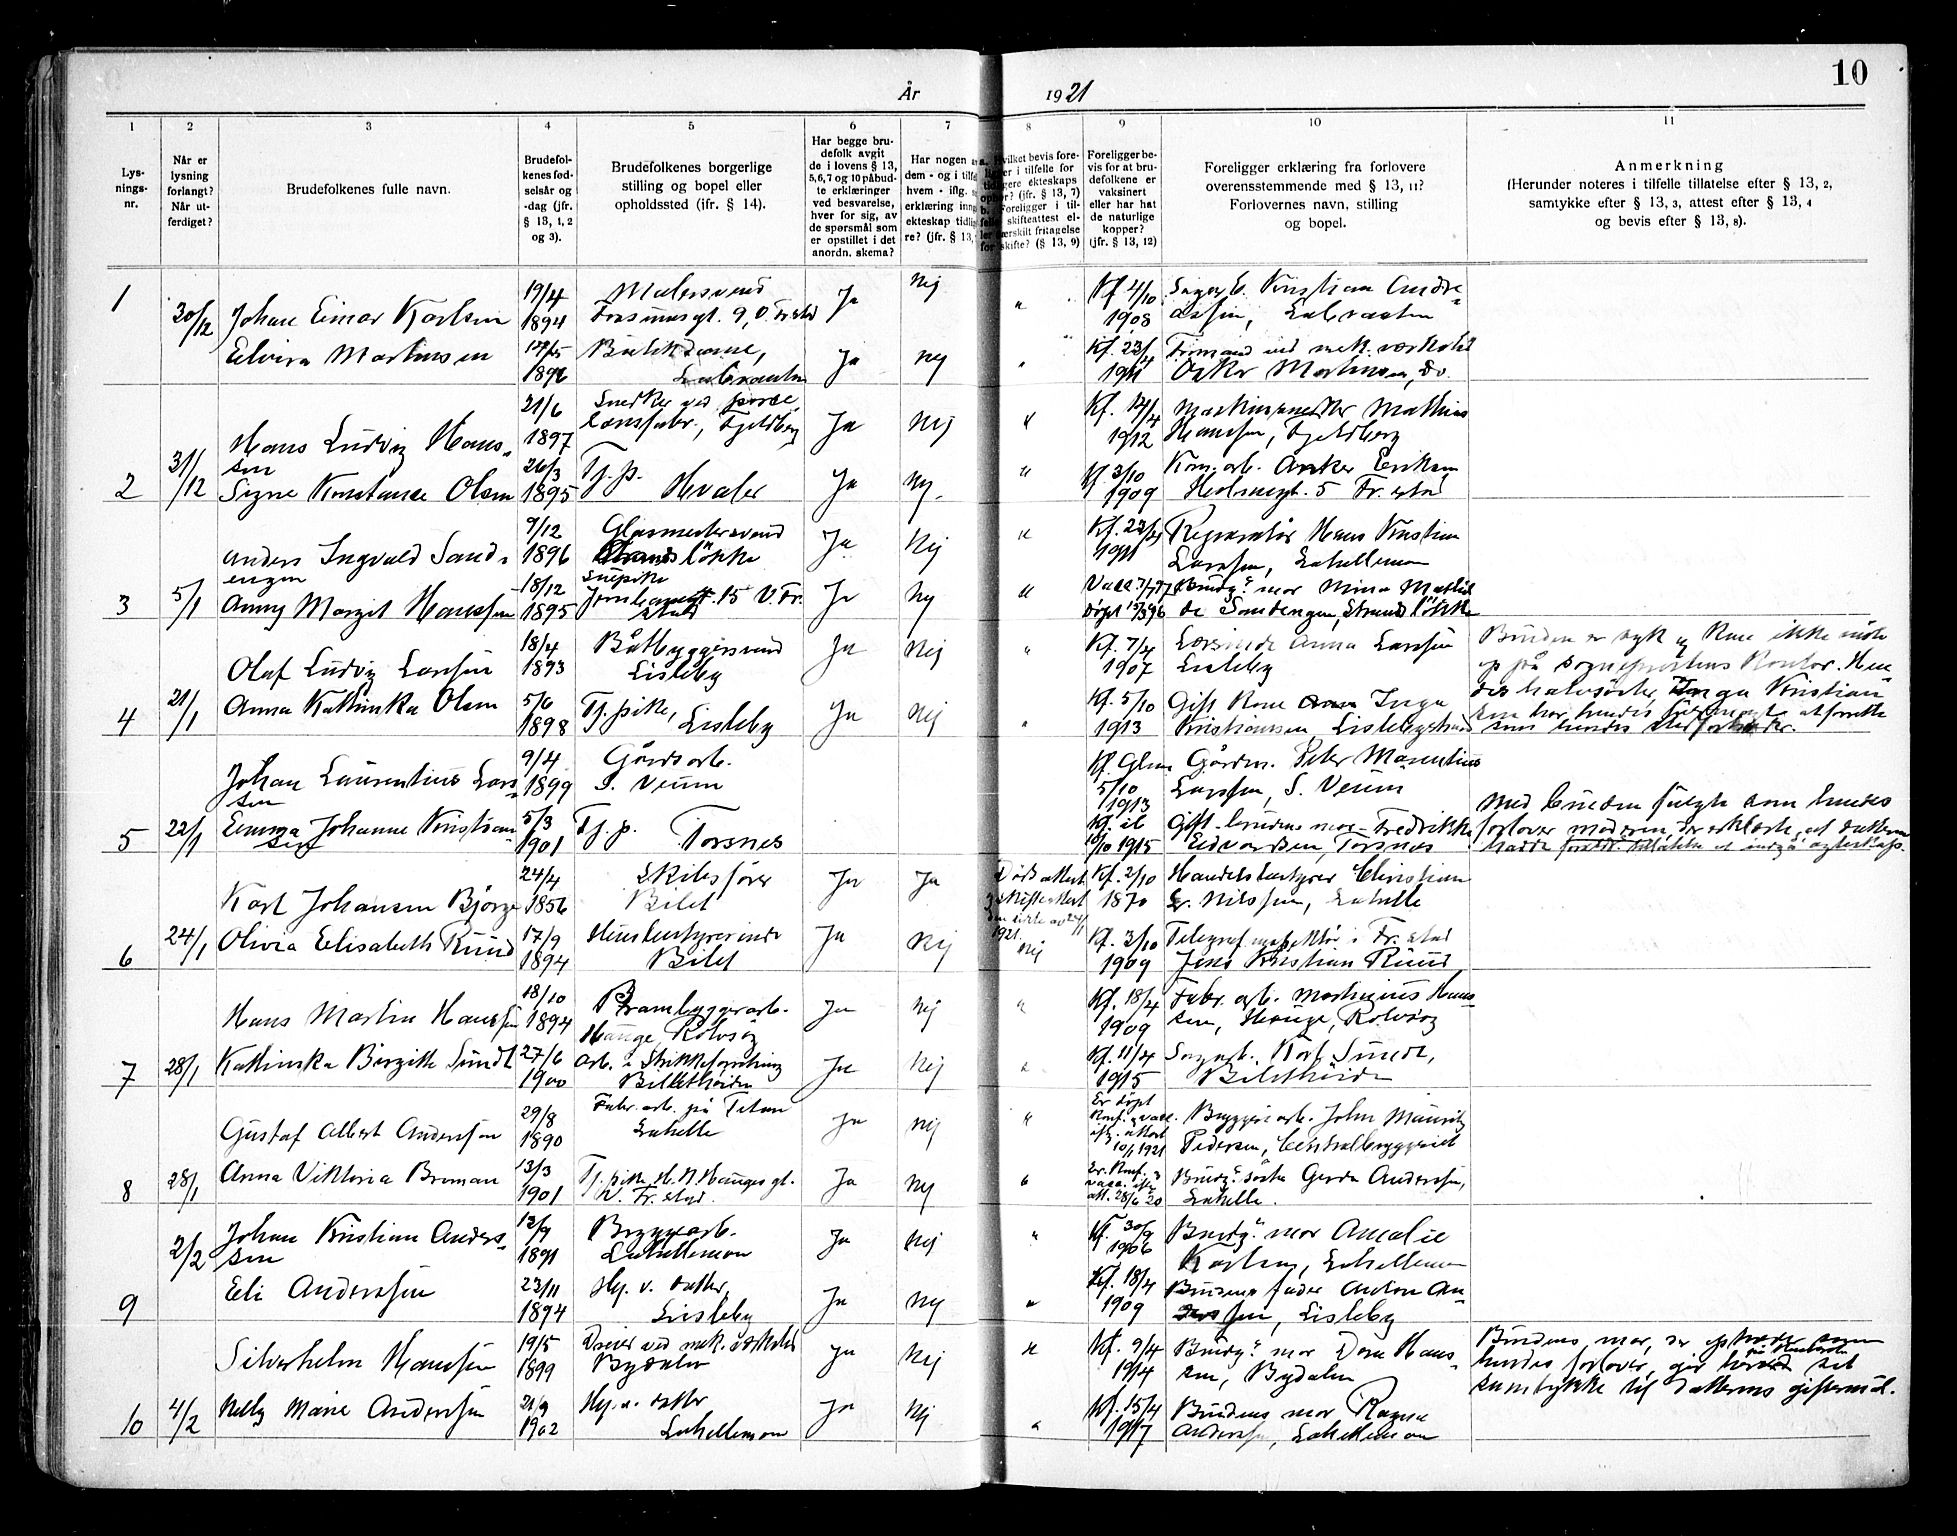 10
År 1921
1 2 3 4 5 6 7 8 9 10 11
Lys-
nings-
nr.
Når er
lysning
forlangt?
Når ut-
ferdiget?
Brudefolkenes fulle navn.
Brudefol-
kenes fød-
selsår og
-dag (jfr.
§ 13, 1, 2
og 3).
Brudefolkenes borgerlige
stilling og bopel eller
opholdssted (jfr. § 14).
Har begge bru-
defolk avgit
de i lovens § 13,
5,6,7 og 10 påbud-
te erklæringer
ved besvarelse,
hver for sig, av
de spørsmål som
er opstillet i det
anordn. skema?
Har nogen a
dem - og i tilfe
hvem - iflg.
erklæring inng
ekteskap tidlig
re? (jfr. § 13,
Hvilket bevis fore-
ligger i tilfelle for
tidligere ekteskaps
ophør? (jfr. § 13, 7)
b. Foreligger i til-
felle skifteattest el-
ler særskilt fritagelse
for skifte? (§ 13, 9)
Foreligger be-
vis for at bru-
defolkene er
vaksinert
eller har hat
de naturlige
kopper?
(jfr. § 13, 12)
Foreligger erklæring fra forlovere
overensstemmende med § 13, 11?
Forlovernes navn, stilling
og bopel.
Anmerkning
(Herunder noteres i tilfelle tillatelse efter § 13, 2,
samtykke efter § 13, 3, attest efter § 13, 4
og bevis efter § 13, 8).
1 30/12 Johan Einar Karlsen 19/4 1894 Malersvend 9, V. Fr.stad Ja Nej " Kf. 4/10 1908 Kristian Andre-
assen,
Elvira Martinsen Ja Nej " Kf. 23/4 1911 Formand ved mek. verksted
Oskar Martinsen, do.
2 31/12 Hans Ludvig Hans-
sen 21/6 1897 Snedker ved Fjeldberg Ja Nej " Kf. 14/4 1912 Mathias
Hanssen, Fjeldberg
Signe Konstanse Olsen 26/3 1895 Tj.p. Hvaler Ja Nej " Kf. 3/10 1909 Kom. arb. Anker Eriksen
5 Fr.stad
3 5/1 Anders Ingvald Sand-
engen 9/12 1896 Glasmestersvend
løkka Ja Nej " Kf. 23/4 1911 Reparatør Hans Kristian
Larssen, Lahellemoen
Anny Margit Hanssen 18/12 1895 15 V. Fr.
stad Ja Nej " Vacc. 7/7 97 Brudg.s mor Mina Mathil-
døpt 15/3 96 de Sandengen, Strandløkka
4 21/1 Olaf Ludvig Larssen 18/4 1893 Båtbyggersvend
Lisleby Ja Nej " Kf. 7/4 1907 Anna Larssen
Lisleby
Bruden er syk og kan ikke møte
op på sogneprestens kontor. Hen-
des halvsøster, Inga Kristian-
sen har hendes fuldmagt
Anna Kathinka Olsen 5/6 1898 Tj.pike, Lisleby Ja Nej " Kf. 5/10 1913 Gift kone Inga
Kristiansen,
5 22/1 Johan Laurentius Lars-
sen 9/4 1899 Gårdsarb.
S. Veum Kf. Glem. 5/10 1913 Peter Marentius
Larssen, S. Veum
Emma Johanne Kristian-
sen 5/3 1901 Tj.p. Torsnes 10/10 1915 Gift. brudens mor Fredrikke
Edvardsen, Torsnes
Med bruden fulgte som hendes
forlover moderen, der erklærte, at datteren
hadde
6 24/1 Karl Johansen Bjørge 24/4 1856 Skibsfører
Bilet Ja Ja Dødsattest
skifteattest
1921. Kf. 2/10 1870 Handelsbestyrer Christian
Nilssen, Lahelle
Olivia Elisabeth Ruud 17/9 1894 Husbestyrerinde
Bilet Ja Nej Nej Kf. 3/10 1909 i Fr.stad
Jens Kristian Ruud
7 28/1 Hans Martin Hanssen 18/10 1894
Hauge, Rolvsøy Ja Nej " Kf. 18/4 1909 Fabr. arb. Martinius Hans-
sen, Hauge, Rolvsøy
Kathinka Birgitte Sundt 27/6 1900 Arb. i Strikkeforretning
Ja Nej " Kf. 11/4 1915 Sagarb. Karl Sundt,
8 28/1 Gustaf Albert Andersson 29/8 1890 Fabr. arb. på Titan
Lahelle Ja Nej " Er døpt
Konf. & vacc.
iflg. attest
10/1 1921 Bryggeriarb. John Mauritz
Pedersen, Centralbryggeriet
Anna Viktoria Broman 13/3 1901 Tj.pike, H. N. Haugesgt.
V. Fr.stad. Ja Nej " Er konf. &
vacc. iflg.
att. 28/6 20 Brudg.s søster Gerda Anderssen,
Lahelle.
9 2/2 Johan Kristian Anders-
sen 13/9 1891 Bryggearb.
Lahellemoen Ja Nej " Kf. 30/9 1906 Brudg.s mor Amalie
Karlsen, Lahellemoen
Eli Anderssen 23/11 1894 Hj. v. datter,
Lisleby Ja Nej " Kf. 18/4 1909 Brudens fader Anton An-
derssen, Lisleby
10 4/2 Silverhelm Hanssen 19/5 1899 Dreier ved mek. verksted
Bydalen Ja Nej " Kf. 9/4 1914 Brudg.s mor Dora Hans-
sen, Bydalen
Brudens mor, der optræder som
hendes forlover, gir sit
samtykke til datterens giftermål.
Nelly Marie Anderssen 21/9 1902 Hj.v. datter
Lahellemoen Ja Nej " Kf. 15/4 1917 Brudens mor Ragna
Anderssen, Lahellemoen